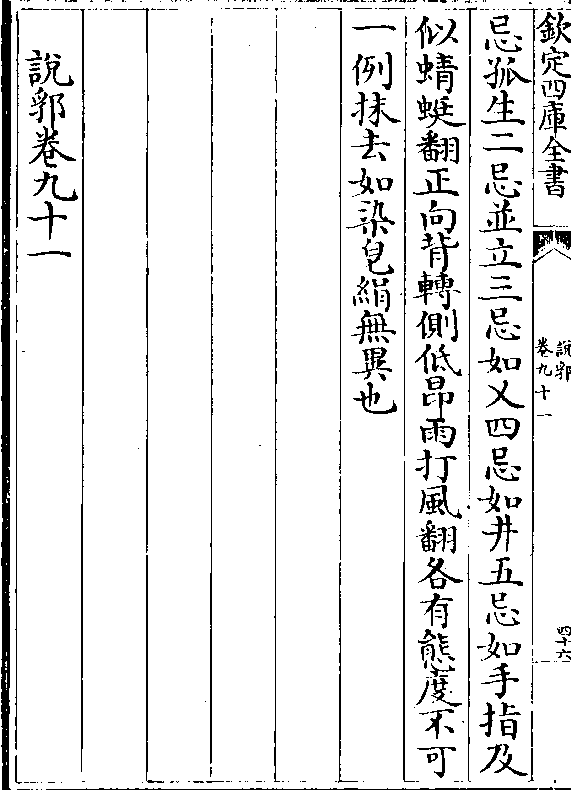 欽定四庫全書
說郛
卷九十一
四十六
忌孤生二忌並立三忌如乂四忌如井五忌如手指及
似蜻蜓翻正向背轉側低昂雨打風翻各有態度不可
一例抹去如染皂絹無異也
說郛卷九十一